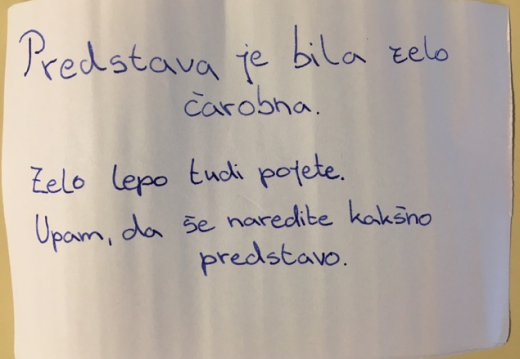 Predstava je bila zelo
čarobna.
Zelo lepo tudi pojete.
Upam, da še naredite kakšno
predstavo.